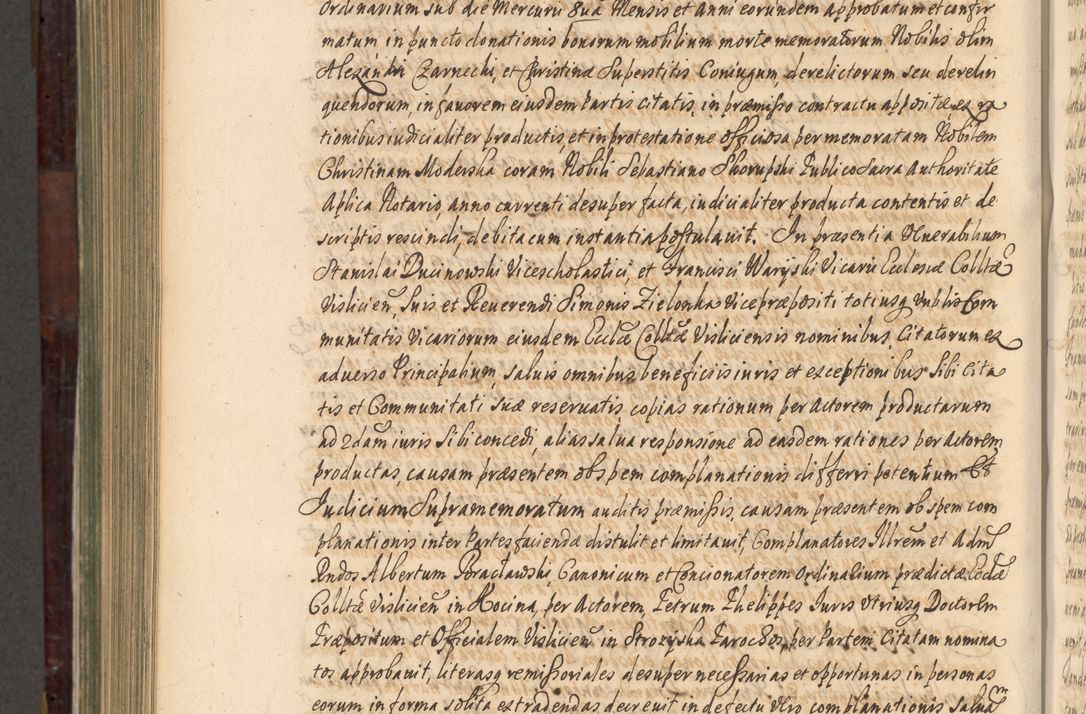 Ordinarium sub die Mercurii 8va Mensis et Anni eorundem approbatum et confir
matum in puncto donationis bonorum mobilium morte memoratorum Nobilis olim
Alexandri Czarnecki, et Christinæ Superstitis Coniugum derelictorum seu derelin
quendorum, in favorem eiusdem Partis Citatis, in præmisso contractu appositæ, ex ra
tionibus iudicialiter productis, et in protestatione officiosa per memoratam Nobilem
Christinam Moderska coram Nobili Sebastiano Skorupski Publico Sacra Authoritate
Aplica Notario, anno currenti desuper facta, iudicialiter producta contentis et de
scriptis rescindi, debita cum instantia postulavit. In præsentia Venerabilium
Stanislai Ducinowski Vicescholastici, et Francisci Waryski Vicarii Ecclesiæ Colltæ
Vislicien, Suis et Reverendi Simonis Zielonka Vicepræpositi totiusq Venblis Com
munitatis Vicariorum eiusdem Ecclæ Colltæ Visliciensis nominibus, Citatorum ex
adverso Principalium, salvis omnibus beneficiis iuris et exceptionibus Sibi Cita
tis et Communitati suæ reservatis, copias rationum per Actorem productarum
ad 2dam iuris Sibi concedi, alias salva responsione ad easdem rationes per Actorem
productas, causam præsentem ob spem complanationis differri petentium Et
Iudicium Supramemoratum auditis præmissis, causam præsentem ob spem com
planationis inter Partes faciendæ distulit et limitavit, Complanatores Illrem et Adm
Rndos Albertum Poracławski, Canonicum et Concionatorem Ordinarium prædictæ Ecclæ
Colltæ Vislicien in Kocina, per Actorem, Petrum Phelippes Iuris Utriusq Doctorem
Præpositum et Officialem Vislicien in Strozyska Parochos, per Partem Citatam nomina
tos approbavit, literasq remissoriales desuper necessarias et opportunas, in personas
eorum in forma solita extradendas decrevit in defectu vero complanationis salvam